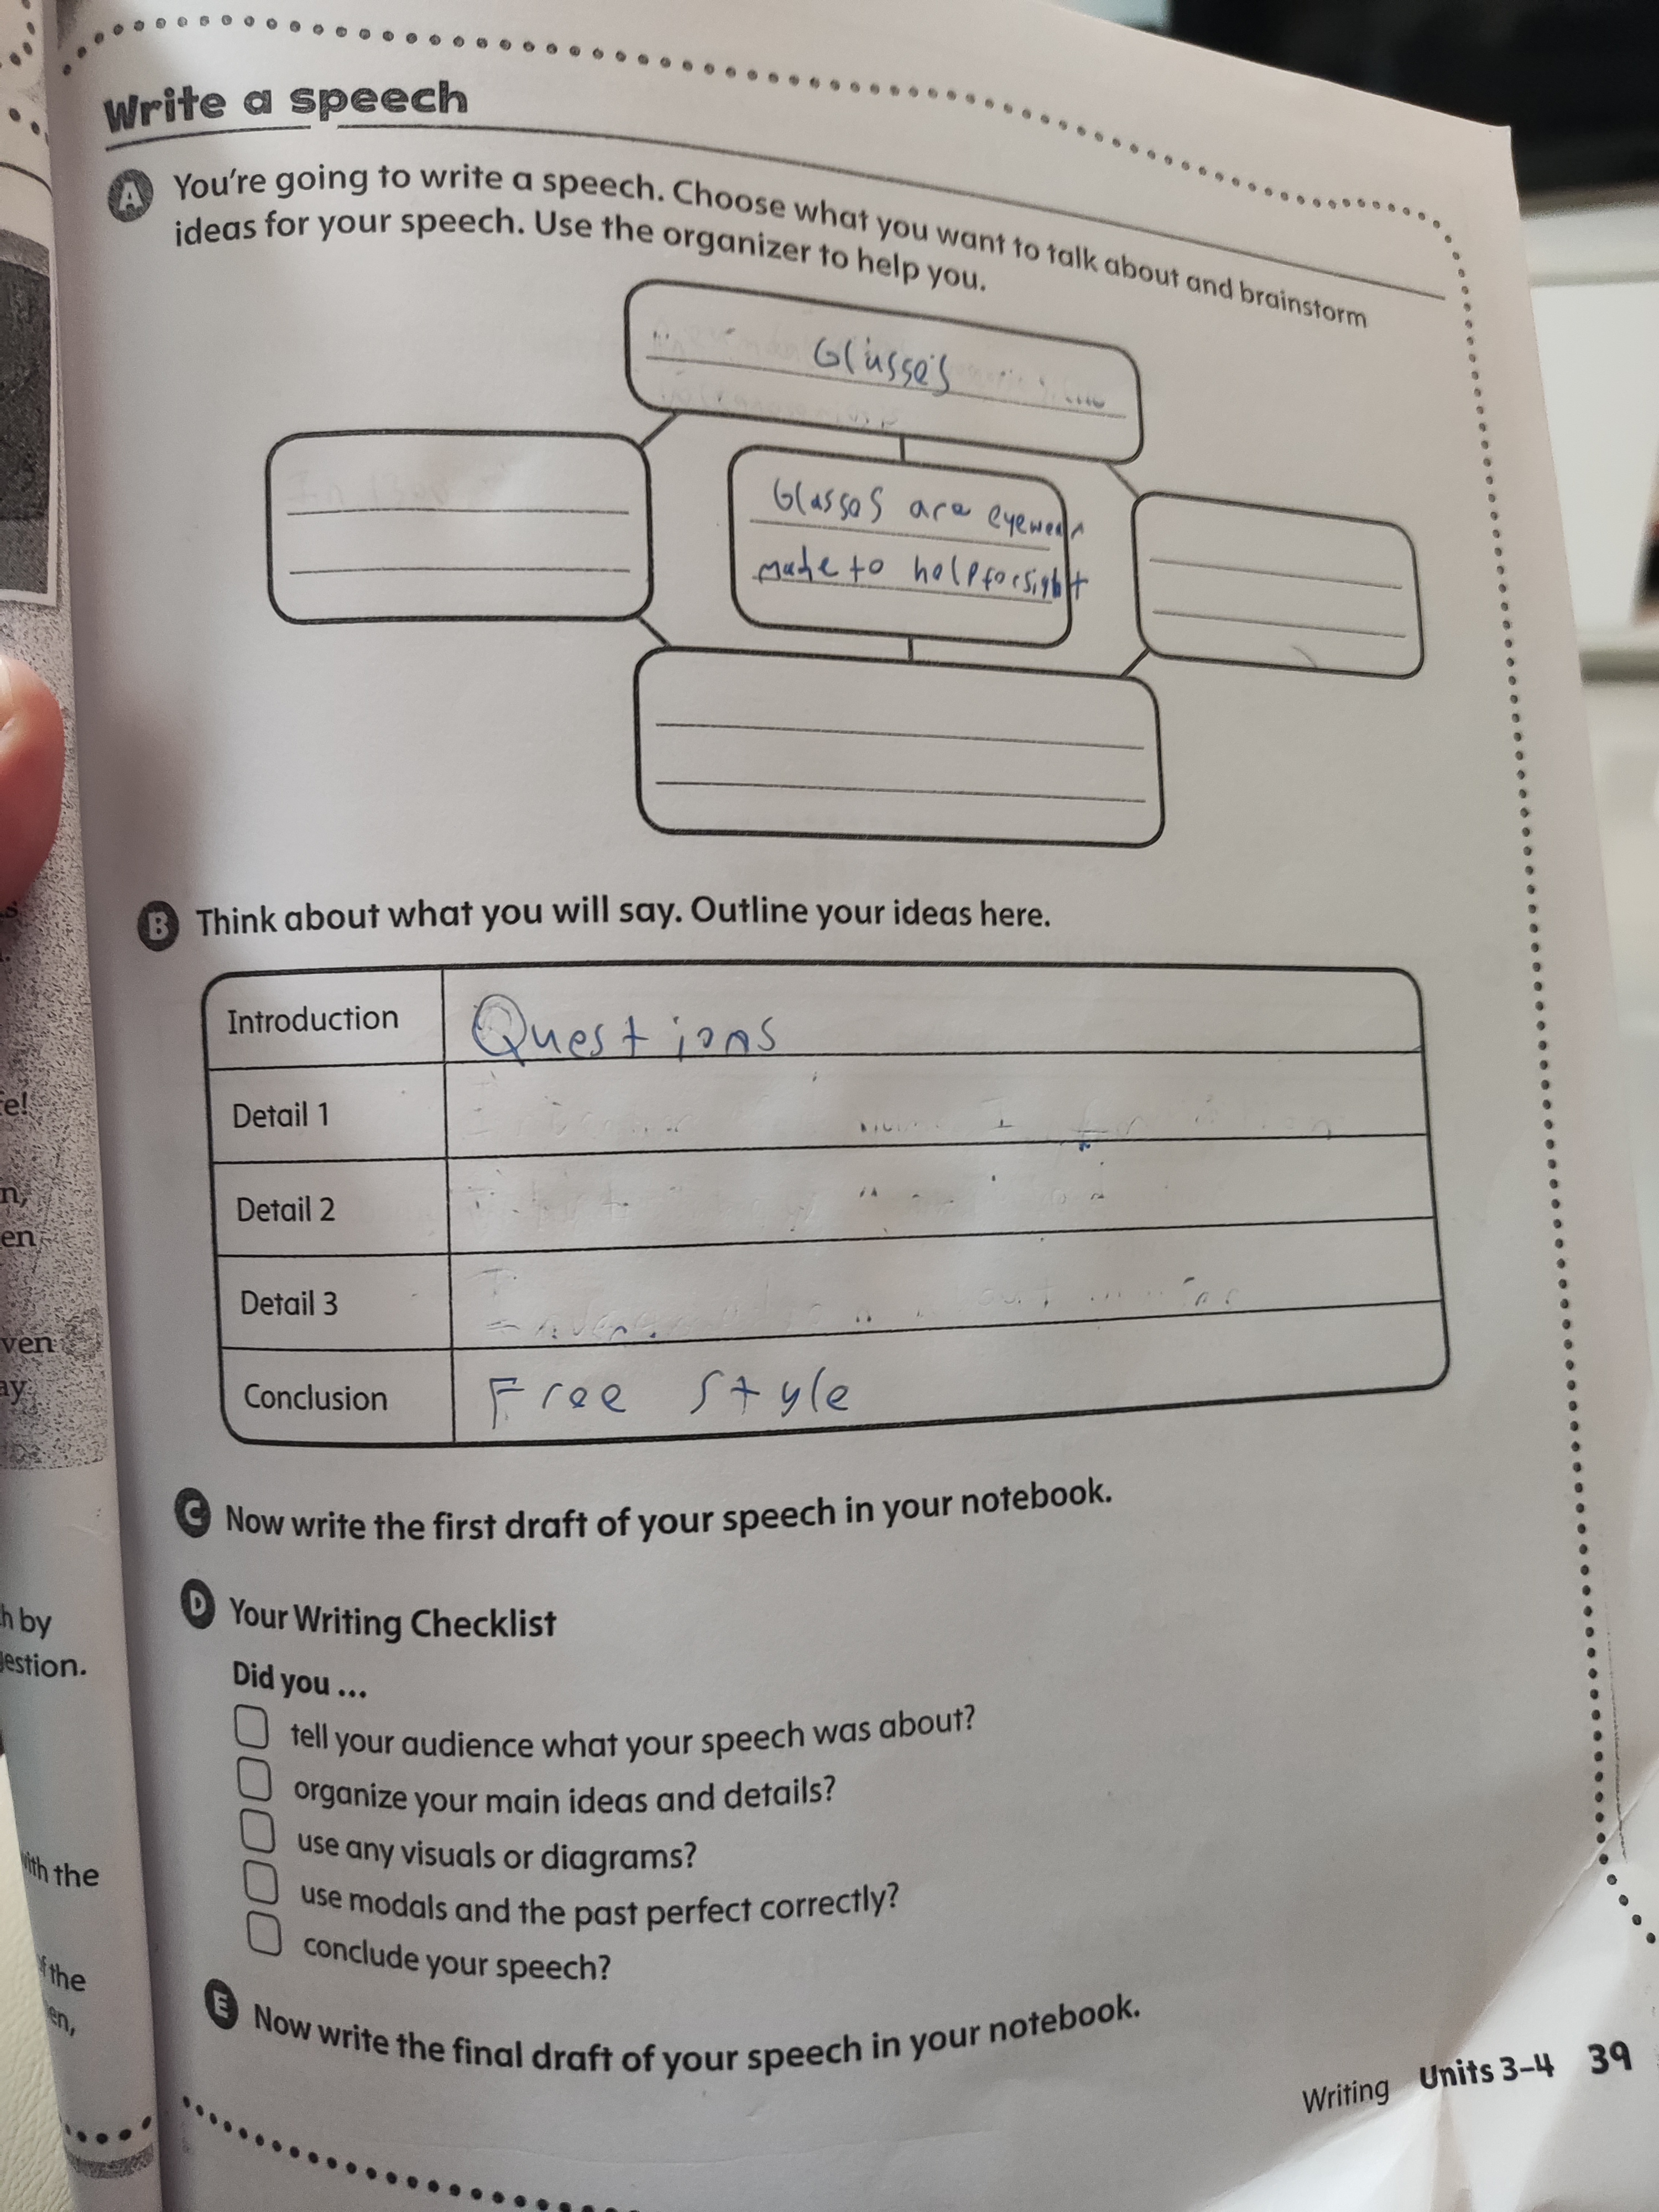 Write a speech
A You're going to write a speech. Choose what you want to talk about and brainstorm
ideas for your speech. Use the organizer to help you.
Glasses
Glasses are eyewear
made to help for sight
B Think about what you will say. Outline your ideas here.
Introduction Questions
Detail 1
Detail 2
Detail 3
Conclusion Free Style
C Now write the first draft of your speech in your notebook.
D Your Writing Checklist
Did you ...
tell your audience what your speech was about?
organize your main ideas and details?
use any visuals or diagrams?
use modals and the past perfect correctly?
conclude your speech?
E Now write the final draft of your speech in your notebook.
Writing Units 3-4 39
fe!
n,
en
ven
ay
h by
estion.
with the
f the
en,